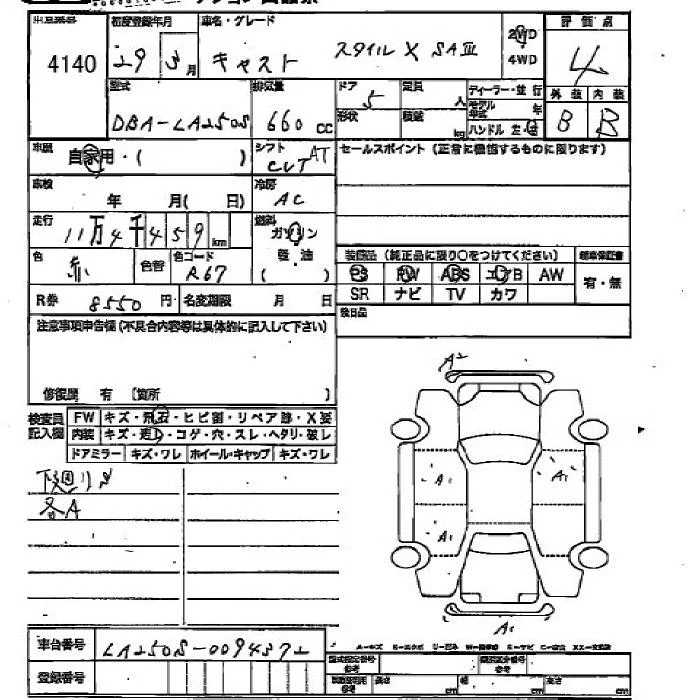 出品番号 4140
初度登録年月 29 3月
車名・グレード キャスト スタイル X SAⅢ
2WD 4WD
評価点 4
型式 DBA-LA250S
排気量 660cc
ドア 5
形状
定員 人
積載 kg
ディーラー・並行
モデル年式 年
ハンドル 左・右
外装 B
内装 B
車歴 自家用・( )
シフト AT CVT
セールスポイント(正常に機能するものに限ります)
車検 年 月( 日)
冷房 AC
走行 11万4千459km
燃料 ガソリン 軽油 ( )
色 赤 色替
色コード R67
装備品(純正品に限り○をつけてください)
PS PW ABS エアB AW
SR ナビ TV カワ
新車保証書 有・無
R券 8550円
名変期限 月 日
後日品
注意事項申告欄(不具合内容等は具体的に記入して下さい)
修復歴 有 〔箇所 〕
検査員記入欄
FW キズ・飛石・ヒビ割・リペア跡・X要
内装 キズ・汚れ・コゲ・穴・スレ・ヘタリ・破レ
ドアミラー キズ・ワレ ホイール・キャップ キズ・ワレ
下廻りS
各A
A2
A1
A1
A1
A1
車台番号 LA250S-0094372
登録番号
型式指定番号 参考
類別区分番号 参考
長さ cm 幅 cm 高さ cm